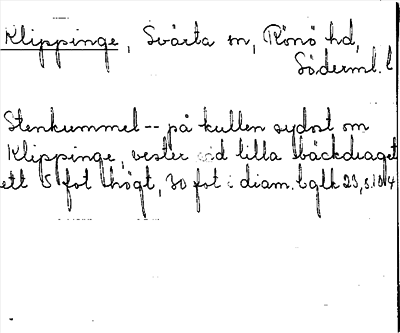 Klippinge, Svärta sn, Rönö hd,
Söderml. l
Stenkummel -- på kullen sydost om
Klippinge, vester vid lilla bäckdraget
ett 5 fot högt, 30 fot i diam. bglk 23, s.